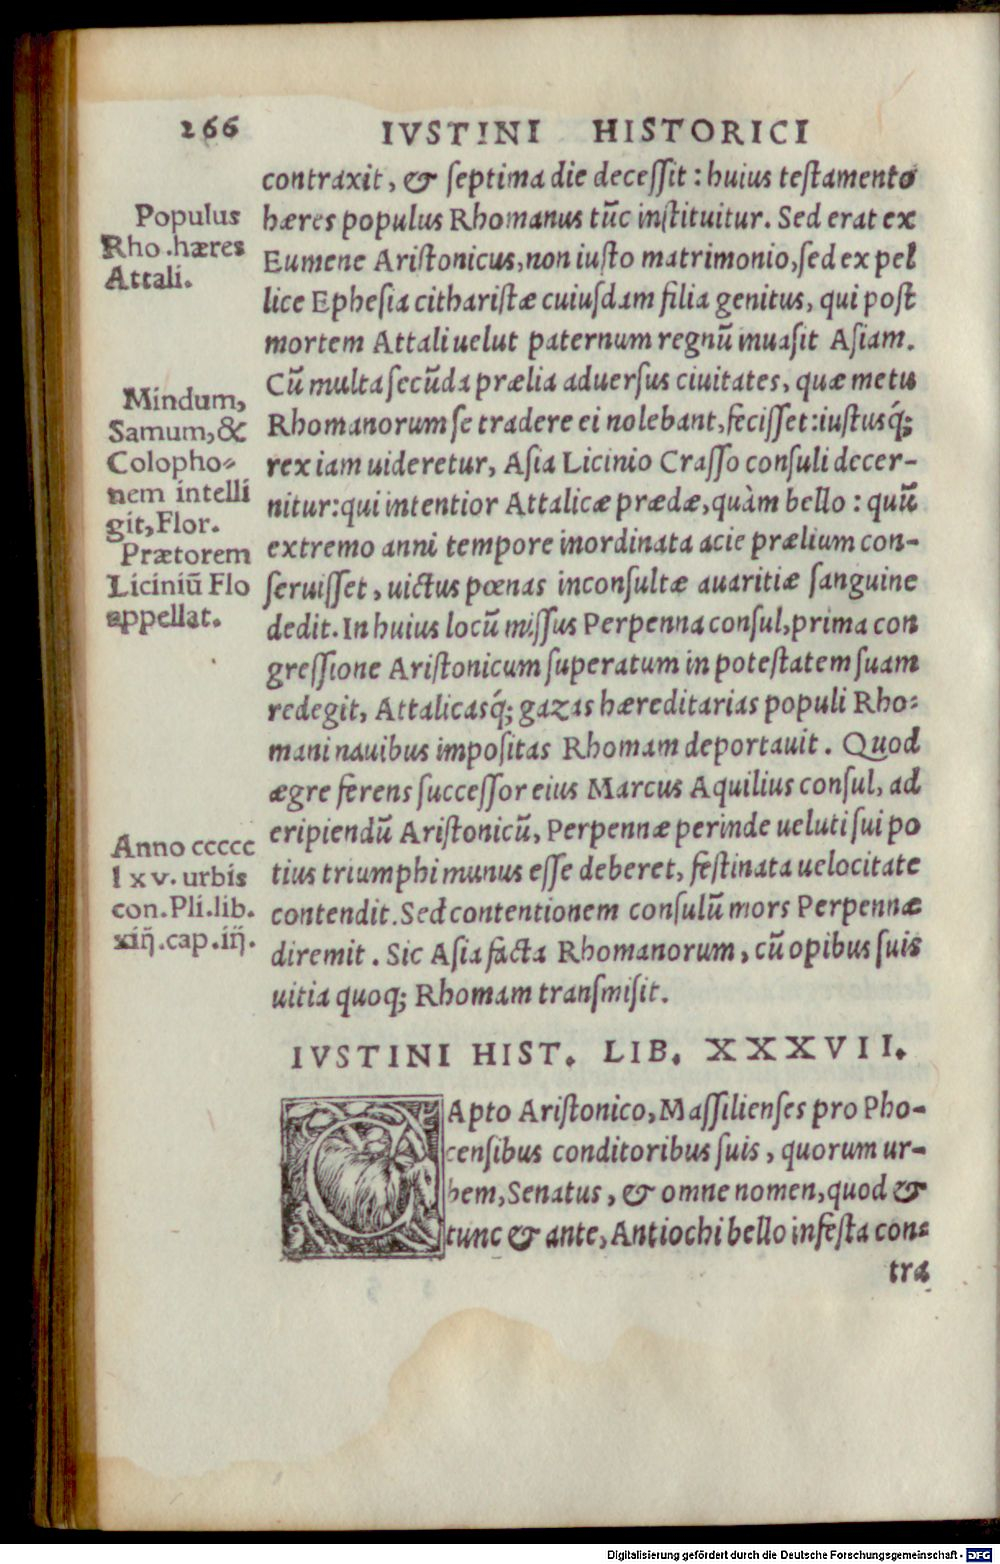 266 IVSTINI HISTORICI
contraxit, & septima die decessit: huius testamento
hæres populus Rhomanus tũc instituitur. Sed erat ex
Eumene Aristonicus, non iusto matrimonio, sed ex pel
lice Ephesia citharistæ cuiusdam filia genitus, qui post
mortem Attali uelut paternum regnũ inuasit Asiam.
Cũ multa secũda prælia aduersus ciuitates, quæ metu
Rhomanorum se tradere ei nolebant, fecisset: iustusq́;
rex iam uideretur, Asia Licinio Crasso consuli decer-
nitur: qui intentior Attalicæ prædæ, quàm bello: quũ
extremo anni tempore inordinata acie prælium con-
seruisset, uictus pœnas inconsultæ auaritiæ sanguine
dedit. In huius locũ missus Perpenna consul, prima con
gressione Aristonicum superatum in potestatem suam
redegit, Attalicasq́; gazas hæreditarias populi Rho-
mani nauibus impositas Rhomam deportauit. Quod
ægre ferens successor eius Marcus Aquilius consul, ad
eripiendũ Aristonicũ, Perpennæ perinde ueluti sui po
tius triumphi munus esse deberet, festinata uelocitate
contendit. Sed contentionem consulũ mors Perpennæ
diremit. Sic Asia facta Rhomanorum, cũ opibus suis
uitia quoq; Rhomam transmisit.
Populus
Rho. hæres
Attali.
Mindum,
Samum, &
Colopho-
nem intelli
git, Flor.
Prætorem
Liciniũ Flo
appellat.
Anno ccccc
lxv. urbis
con. Pli. lib.
xiij. cap. iij.
IVSTINI HIST. LIB. XXXVII.
CApto Aristonico, Massilienses pro Pho-
censibus conditoribus suis, quorum ur-
bem, Senatus, & omne nomen, quod &
tunc & ante, Antiochi bello infesta con-
tra
Digitalisierung gefördert durch die Deutsche Forschungsgemeinschaft - DFG